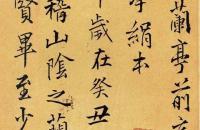 蘭亭前
絹本
年歲在癸丑
稽山陰之蘭
賢畢至少